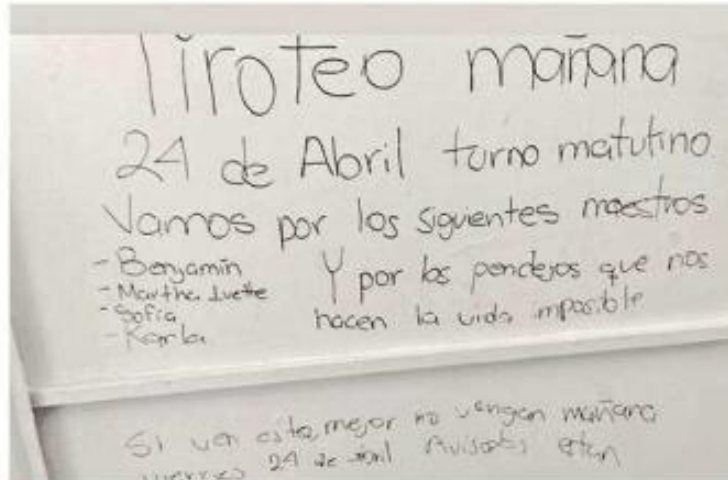 Tiroteo mañana
24 de Abril turno matutino
Vamos por los siguientes maestros
- Benjamín
- Martha Ivette
- Sofía
- Karla
Y por los pendejos que nos
hacen la vida imposible
Si ven esto, mejor no vengan mañana
viernes 24 de abril Avisados están